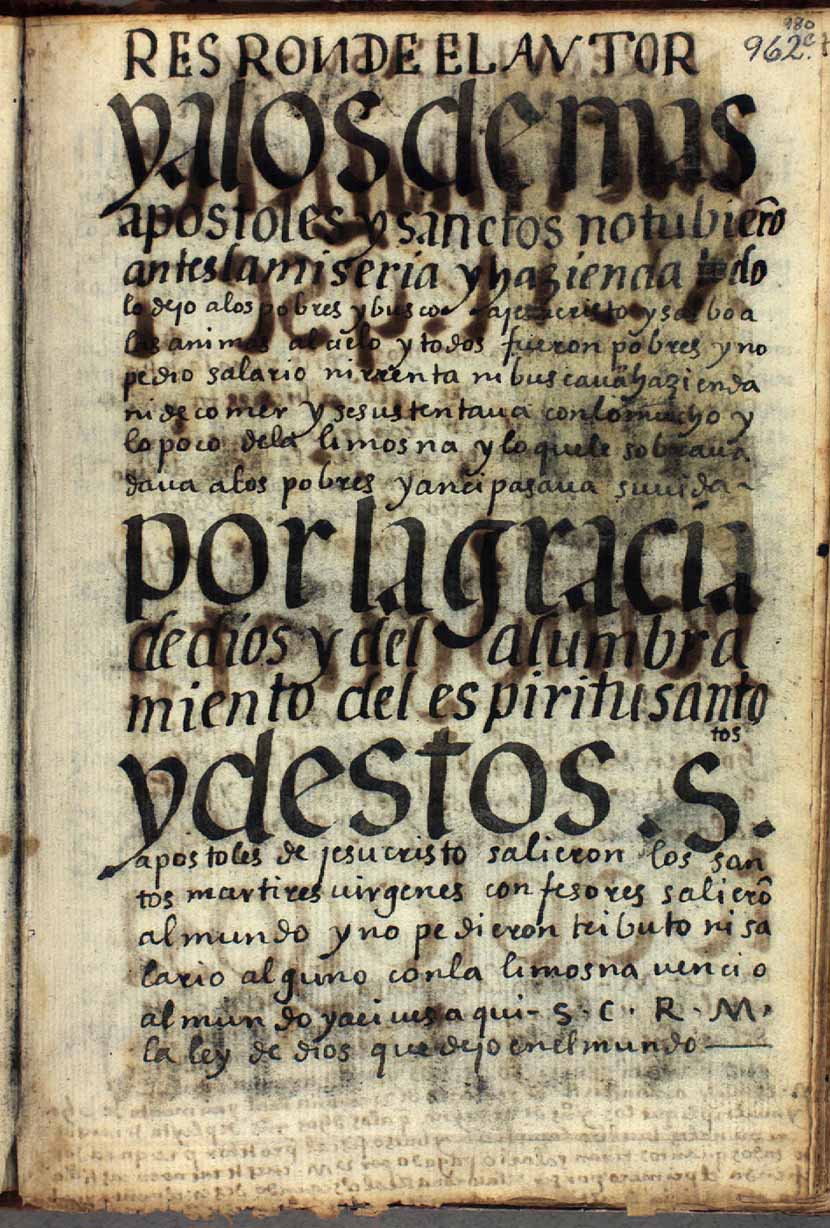 980
962
RESPONDE EL AVTOR
y a los demas
apostoles y sanctos no tubierõ
antes la miseria y hazienda do
lo dejo a los pobres y busco a jesucristo y salbo a
las animas al cielo y todos fueron pobres y no
pedio salario ni rrenta ni buscauã hazienda
ni de comer y se sustentaua con lo mucho y
lo poco de la limosna y lo que le sobraua
daua a los pobres y anci pasaua su uida
por la gracia
de dios y del alumbra
miento del espiritu santo
y destos . S. tos
apostoles de jesucristo salieron los san
tos martires uirgenes confesores salierõ
al mundo y no pedieron tributo ni sa
lario alguno con la limosna uencio
al mundo y aci ues aqui - S. C. R. M.
la ley de dios que dejo en el mundo